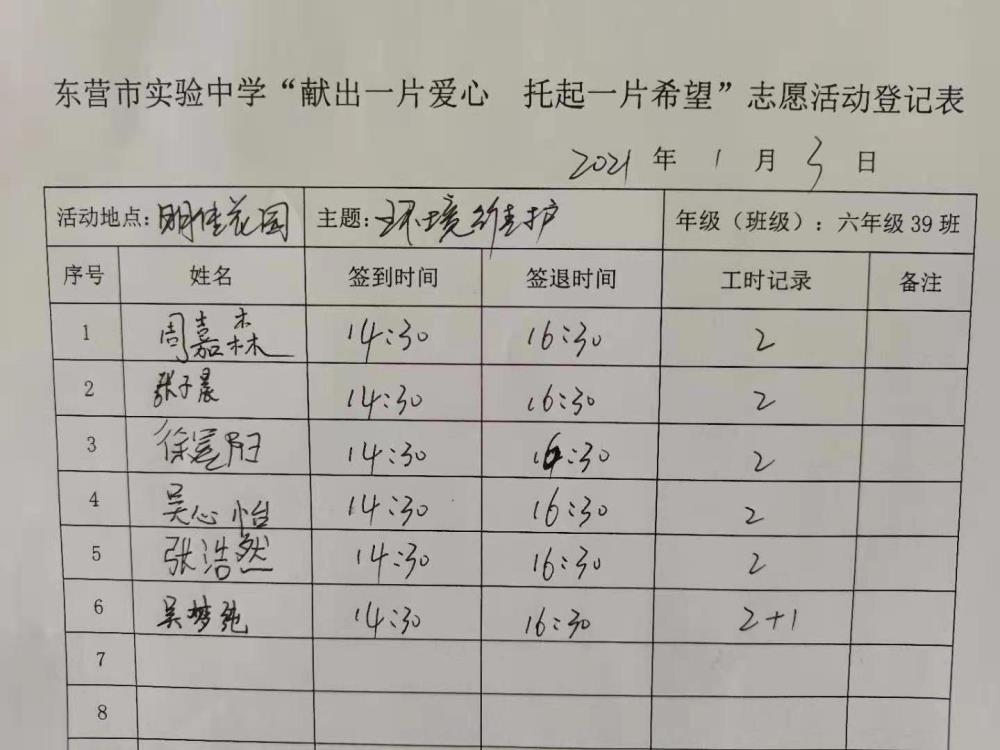 东营市实验中学“献出一片爱心 托起一片希望”志愿活动登记表
2021 年 1 月 3 日
活动地点：明佳花园 主题：环境维护 年级（班级）：六年级 39 班
序号 姓名 签到时间 签退时间 工时记录 备注
1 周嘉森 14:30 16:30 2
2 张子晨 14:30 16:30 2
3 徐 14:30 16:30 2
4 吴心怡 14:30 16:30 2
5 张浩然 14:30 16:30 2
6 吴梦 14:30 16:30 2+1
7
8